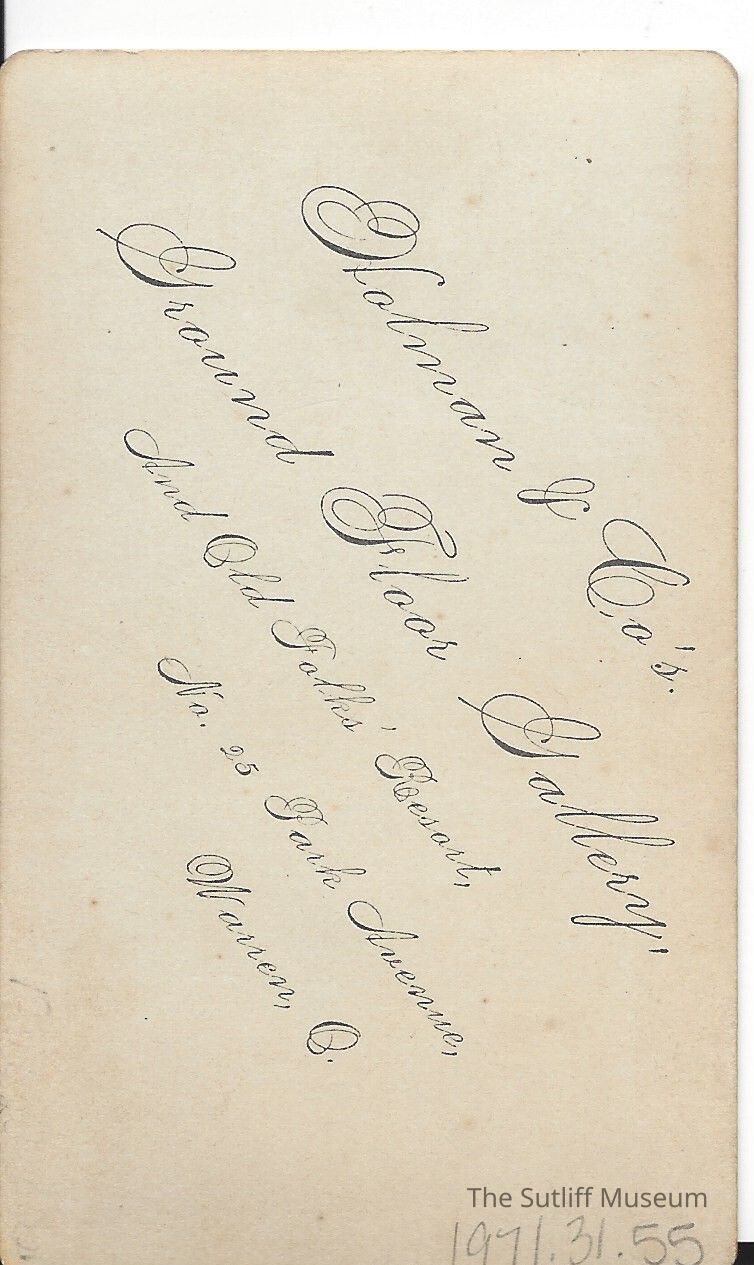 Holman & Co's.
Ground Floor Gallery'
And Old Folks' Resort,
No. 25 Park Avenue,
Warren, O.
The Sutliff Museum
1971.31.55